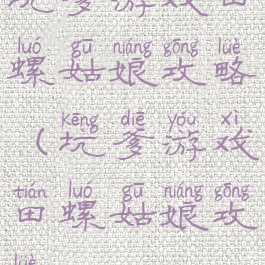 坑爹游戏田
luó gū niáng gōng lüè
螺姑娘攻略
kēng diē yóu xì
（坑爹游戏
tián luó gū niáng gōng
田螺姑娘攻
lüè